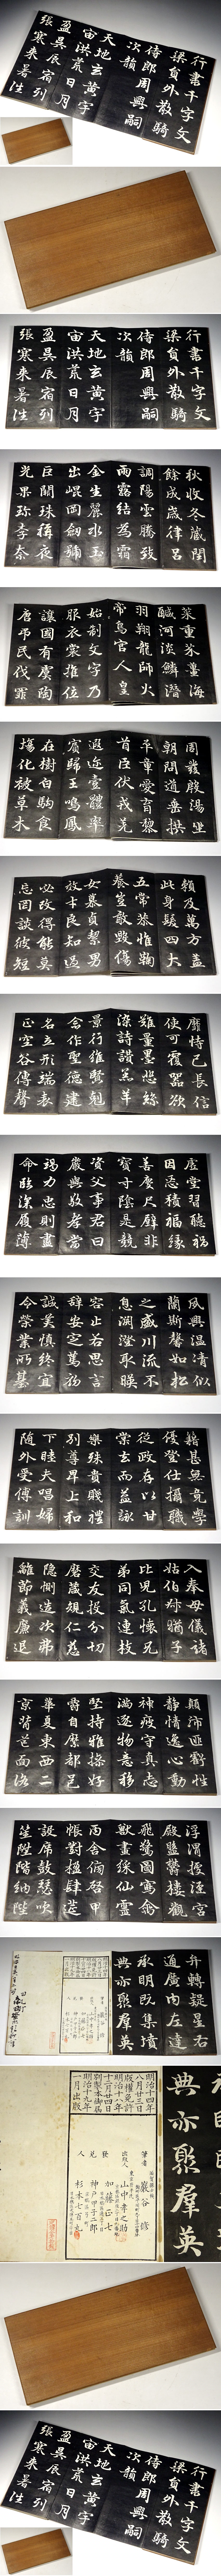 行書千字文
梁員外散騎
侍郎周興嗣
次韻
天地玄黃宇
宙洪荒日月
盈昃辰宿列
張寒来暑往
行書千字文
梁員外散騎
侍郎周興嗣
次韻
天地玄黃宇
宙洪荒日月
盈昃辰宿列
張寒来暑往
秋收冬蔵閏
餘成歳律呂
調陽雲騰致
雨露結為霜
金生麗水玉
出崐岡劔號
巨闕珠稱夜
光果珎李柰
菜重芥薑海
鹹河淡鱗潜
羽翔龍師火
帝鳥官人皇
始制文字乃
服衣裳推位
讓國有虞陶
唐弔民伐罪
周發殷湯坐
朝問道垂拱
平章愛育黎
首臣伏戎羌
遐迩壹體率
賓歸王鳴鳳
在樹白駒食
場化被草木
頼及萬方盖
此身髮四大
五常恭惟鞠
養豈敢毀傷
女慕貞絜男
效才良知過
必改得能莫
忘罔談彼短
靡恃己長信
使可覆器欲
難量墨悲絲
染詩讃羔羊
景行維賢剋
念作聖德建
名立形端表
正空谷傳聲
虛堂習聽禍
因惡積福緣
善慶尺璧非
寳寸陰是競
資父事君曰
嚴與敬孝當
竭力忠則盡
命臨深履薄
夙興温凊似
蘭斯馨如松
之盛川流不
息淵澄取暎
容止若思言
辞安定篤初
誠美慎終宜
令榮業所基
籍甚無竟學
優登仕攝職
從政存以甘
棠去而益詠
樂殊貴賤禮
別尊卑上和
下睦夫唱婦
随外受傅訓
入奉母儀諸
姑伯叔猶子
比兒孔懐兄
弟同氣連枝
交友投分切
磨葴規仁慈
隱惻造次弗
離節義廉退
顛沛匪虧性
静情逸心動
神疲守真志
満逐物意移
堅持雅操好
爵自縻都邑
華夏東西二
京背邙面洛
浮渭據涇宮
殿盤鬱楼觀
飛驚圖寫禽
獣畫綵仙靈
丙舎傍啓甲
帳對楹肆筵
設席鼓瑟吹
笙陞階納陛
弁轉疑星右
通廣内左達
承明既集墳
典亦聚群英
典亦聚群英
筆者 巖谷 修
出版人 山中孝之助
發兌人
加藤正七
神戸甲子二郎
杉本七百丸
明治十四年
八月三日
版權免許
明治十八年
十二月廿四日
別製本御届
明治十九年
一月出版
行書千字文
梁員外散騎
侍郎周興嗣
次韻
天地玄黃宇
宙洪荒日月
盈昃辰宿列
張寒来暑往